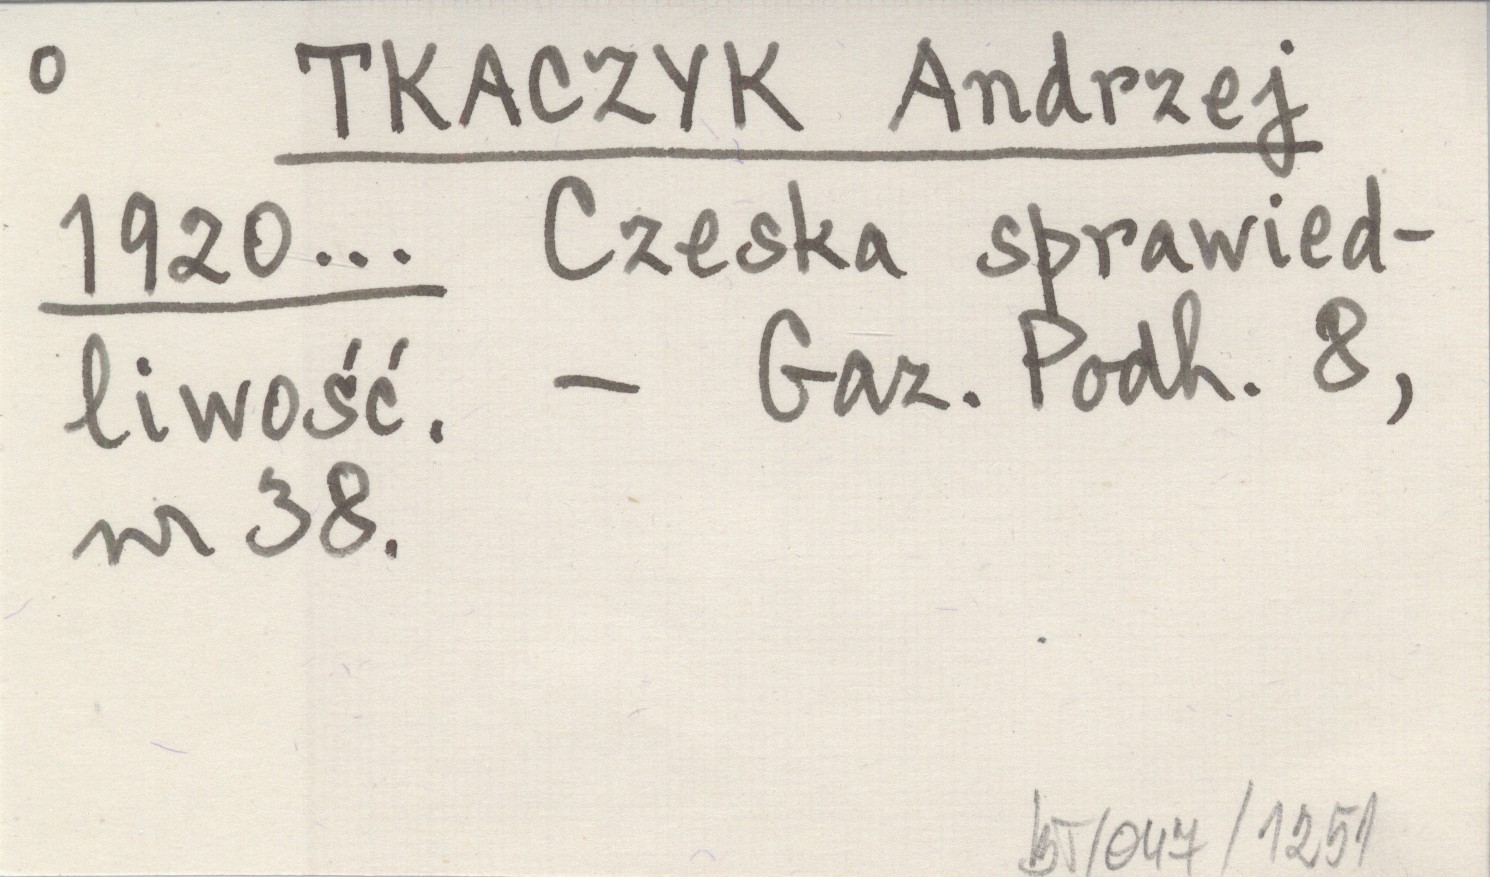 o TKACZYK Andrzej
1920... Czeska sprawied-
liwość. – Gaz. Podh. 8,
nr 38.
/047/1251